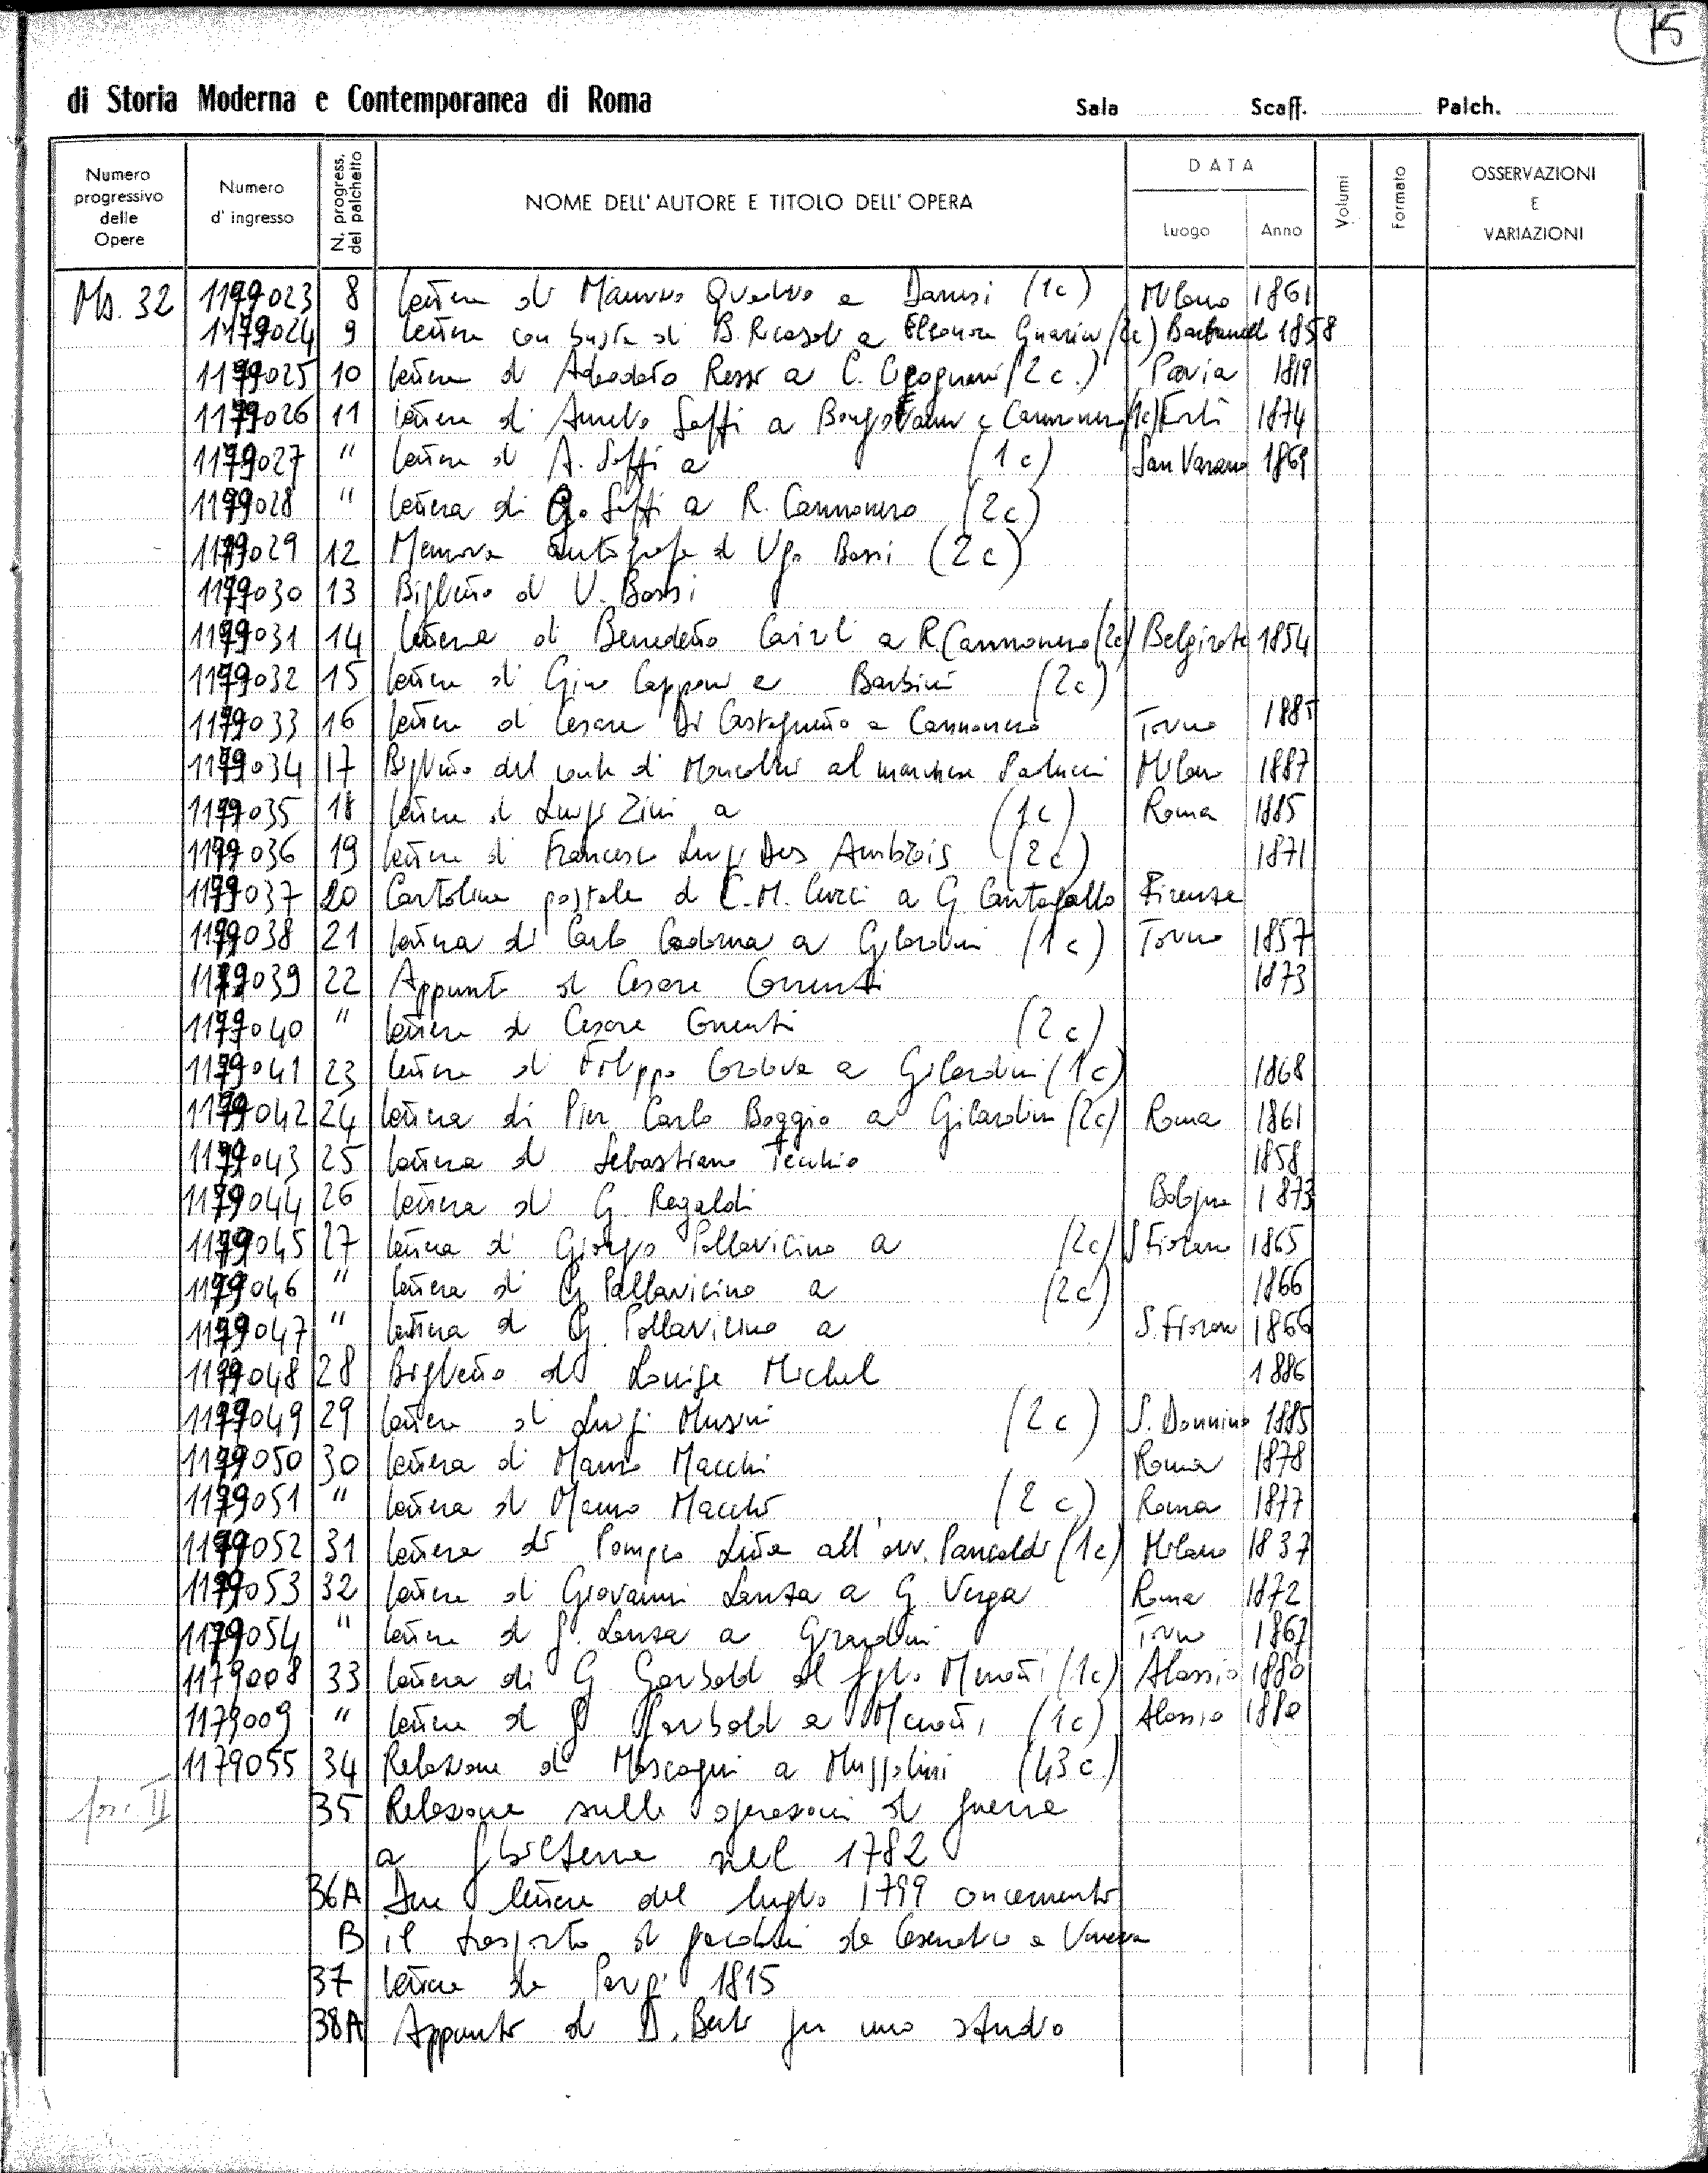 15
di Storia Moderna e Contemporanea di Roma Sala Scaff. Palch.
Numero progressivo delle Opere Numero d'ingresso N. progress. del palchetto NOME DELL'AUTORE E TITOLO DELL'OPERA DATA Luogo Anno Volumi Formato OSSERVAZIONI E VARIAZIONI
Ms. 32 1179023 8 lettera di Maurizio Quadrio a Damsi (1c) Milano 1861
1179024 9 lettera con busta di B. Ricasoli a Eleonora Guarini (2c) 1858
1179025 10 lettera di Adeodato Ressi a C. Cicognara (2 c.) Pavia 1819
1179026 11 lettera di Aurelio Saffi a Bongiovanni e Cannonero (1c) Forlì 1874
1179027 " lettera di A. Saffi a (1 c) San Varano 1869
1179028 " lettera di A. Saffi a R. Cannonero (2c)
1179029 12 Memoria autografa di Ugo Bassi (2 c)
1179030 13 Biglietto di U. Bassi
1179031 14 lettera di Benedetto Cairoli a R Cannonero (2c) Belgirate 1854
1179032 15 lettera di Gino Capponi a Barbini (2c)
1179033 16 lettera di Cesare Di Castagnetto a Cannonero Torino 1885
1179034 17 Biglietto del conte di al marchese Paulucci Milano 1887
1179035 18 lettera di Luigi Zini a (1c) Roma 1885
1179036 19 lettera di Francesco Luigi Des Ambrois (2c) 1871
1179037 20 Cartolina postale di C. M. Curci a G. Cantagallo Firenze
1179038 21 lettera di Carlo Cadorna a Gilardini (1c) Torino 1857
1179039 22 Appunti di Cesare Correnti 1873
1179040 " lettera di Cesare Correnti (2c)
1179041 23 lettera di Filippo Cordova a Gilardini (1c) 1868
1179042 24 lettera di Pier Carlo Boggio a Gilardini (2c) Roma 1861
1179043 25 lettera di Sebastiano Tecchio 1858
1179044 26 lettera di G. Regaldi Bologna 1873
1179045 27 lettera di Giorgio Pallavicino a (2c) S Fiorano 1865
1179046 " lettera di G Pallavicino a (2c) 1866
1179047 " lettera di G. Pallavicino a S. Fiorano 1866
1179048 28 Biglietto di Louise Michel 1886
1179049 29 lettera di Luigi Musini (2c) S. Donnino 1885
1179050 30 lettera di Mauro Macchi Roma 1878
1179051 " lettera di Mauro Macchi (2 c) Roma 1877
1179052 31 lettera di Pompeo Litta all'avv. Pancaldi (1c) Milano 1837
1179053 32 lettera di Giovanni Lanza a G Verga Roma 1872
1179054 " lettera di G. Lanza a Girardini Torino 1867
1179008 33 lettera di G Garibaldi al figlio Menotti (1c) Alassio 1880
1179009 " lettera di G Garibaldi a Menotti (1c) Alassio 1880
1179055 34 Relazione di Mascagni a Mussolini (43 c.)
fasc. II 35 Relazione sulle operazioni di guerra
a Gibilterra nel 1782
36A Due lettere del luglio 1799 concernenti
B il trasporto di giacobini da Cesenatico a Venezia
37 lettera da Parigi 1815
38A Appunti di D. Berti per uno studio